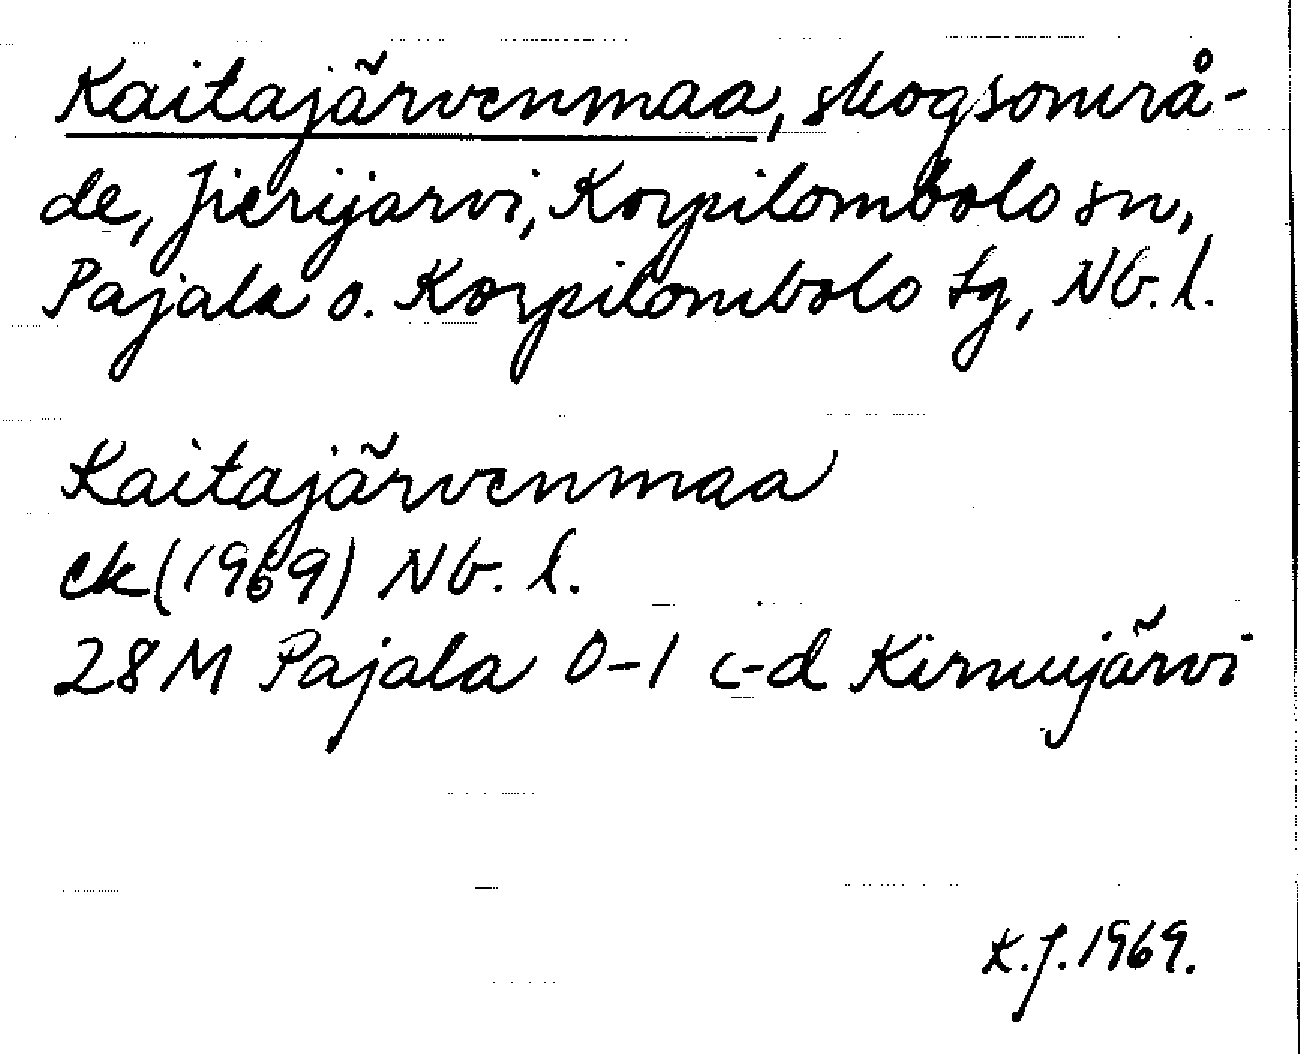 Kaitajärvenmaa, skogsområ-
de, Jierijarvi, Korpilombolo sn,
Pajala o. Korpilombolo tg, Nb. l.
Kaitajärvenmaa
ek (1969) Nb. l.
28 M Pajala 0-1 c-d Kirnujärvi
K.J. 1969.